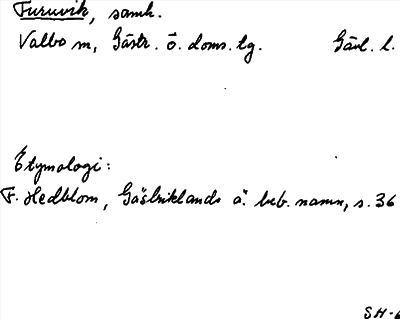 Furuvik, samh.
Valbo sn, Gästr. ö. doms. lg. Gävl. l.
Etymologi:
F. Hedblom, Gästriklands ä. beb. namn, s. 36
SH-6